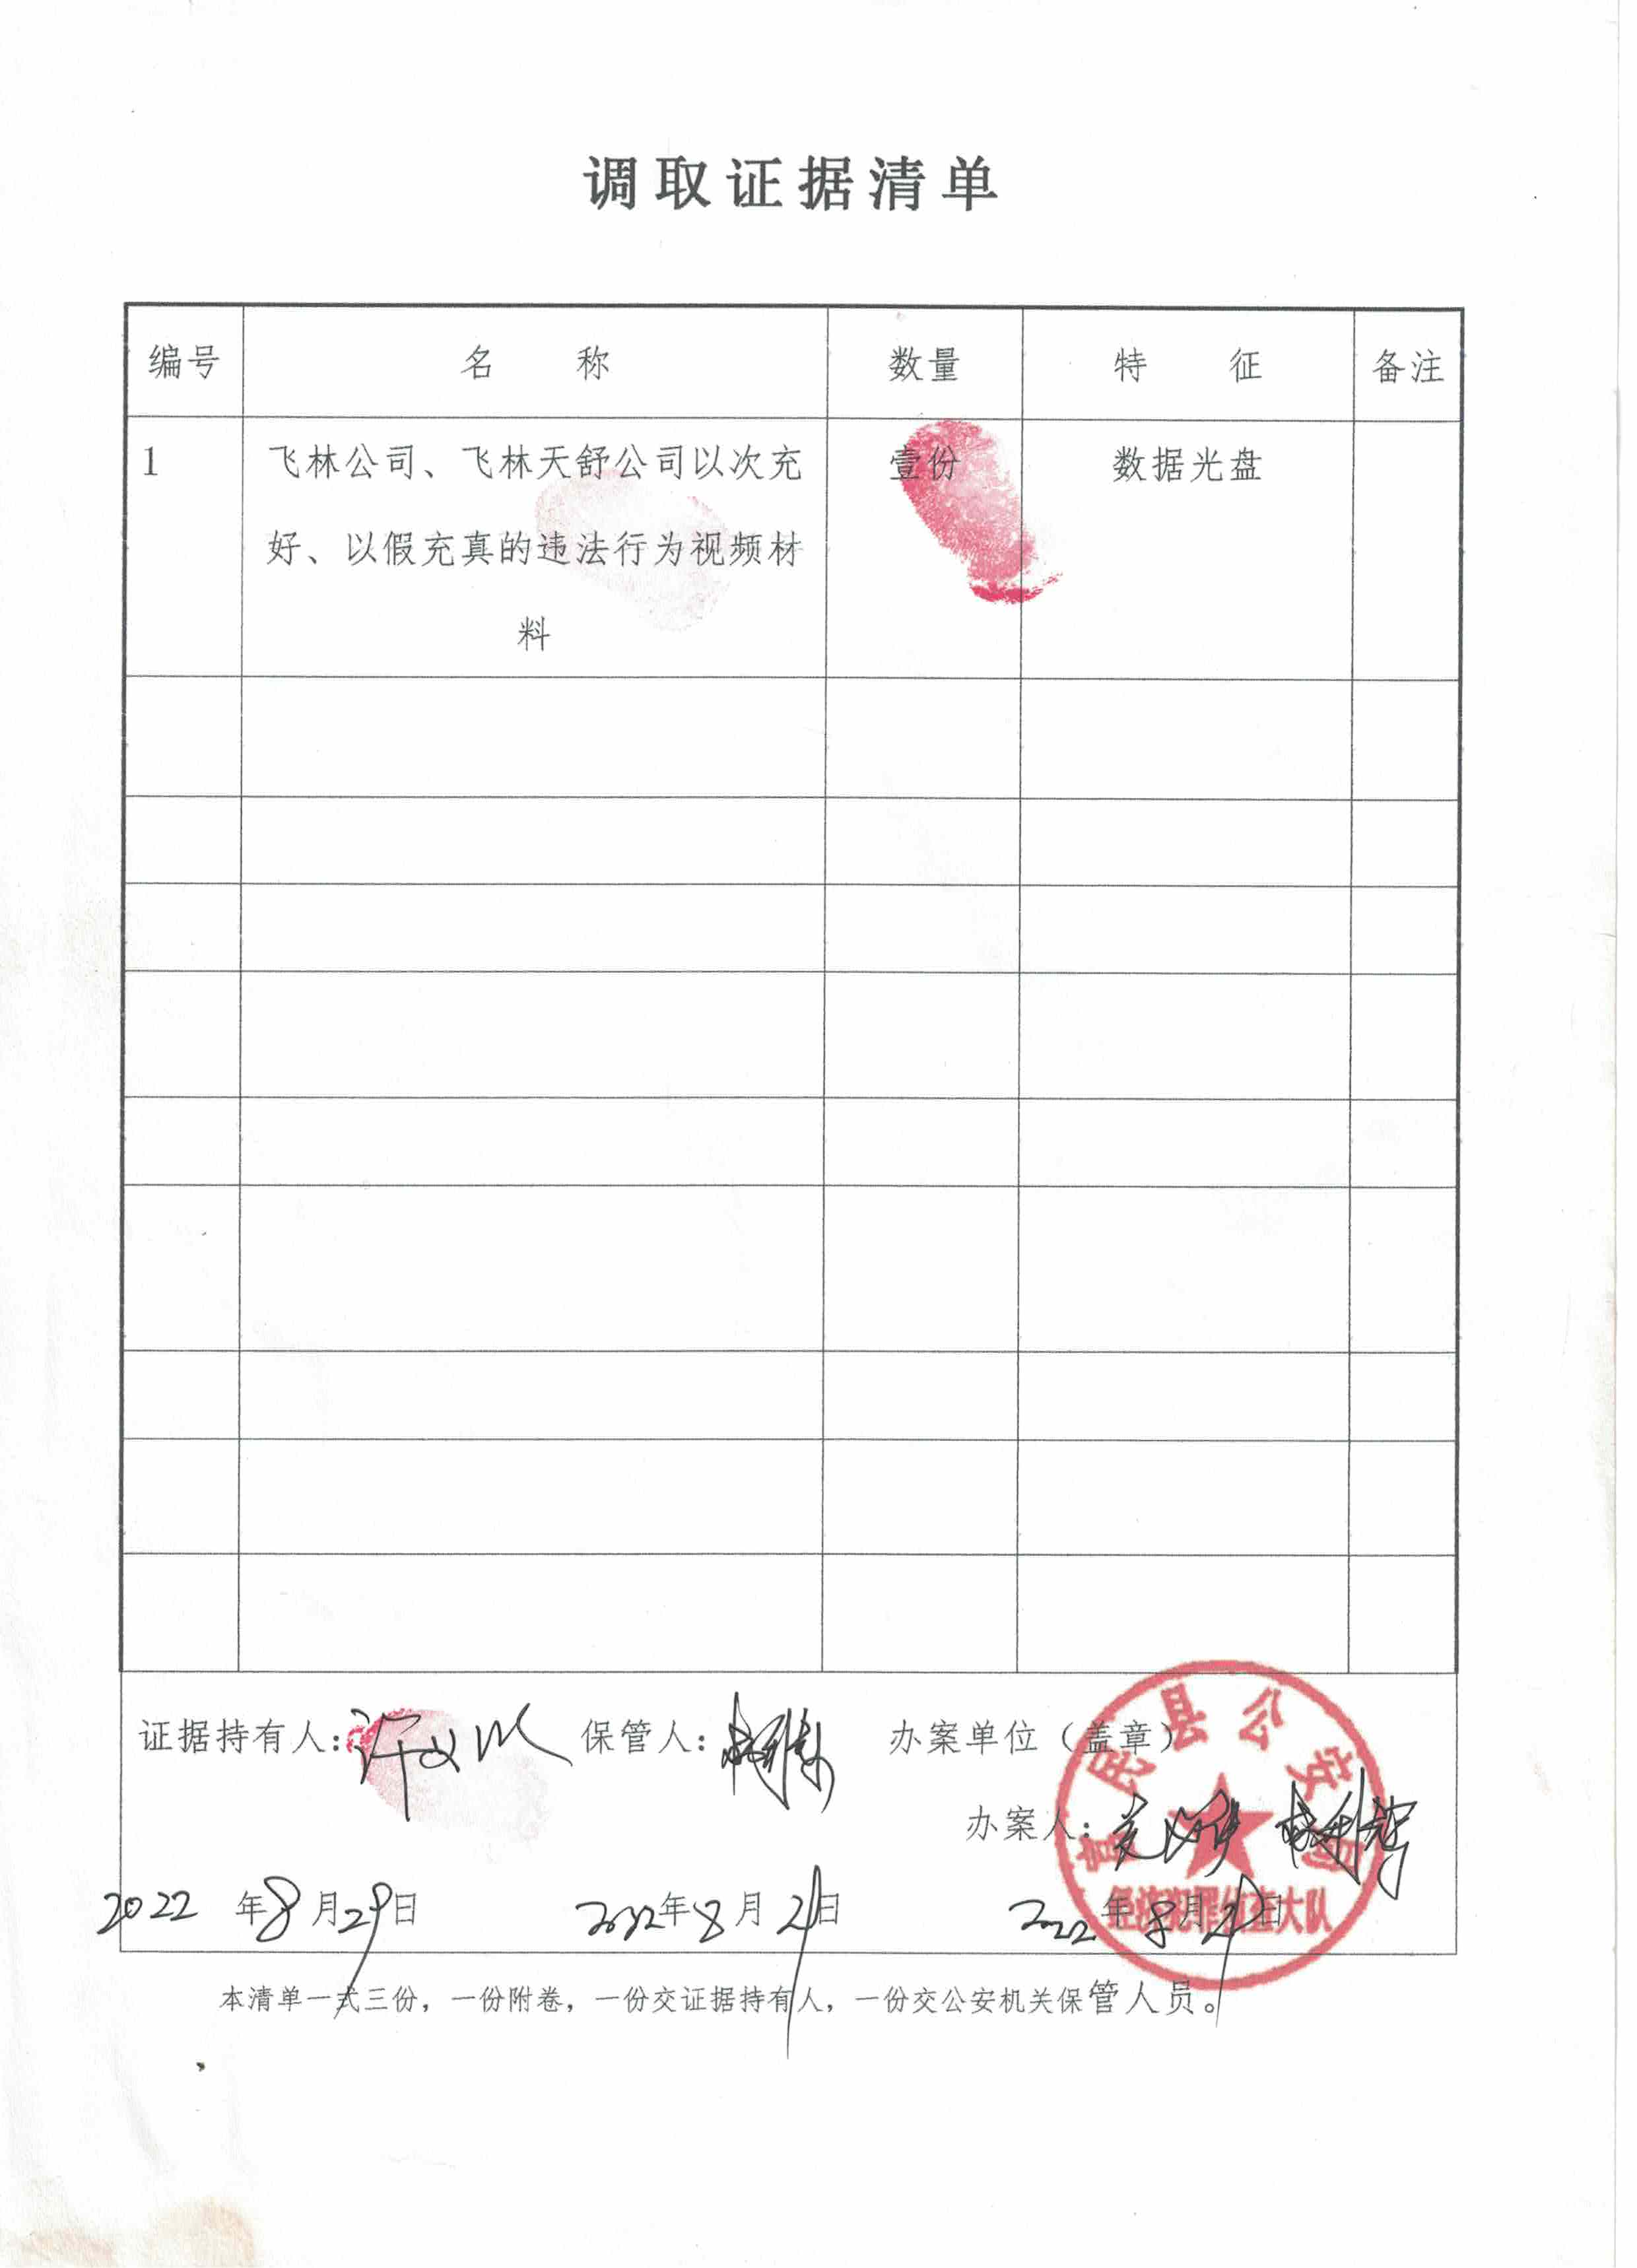 调取证据清单
编号 名 称 数量 特 征 备注
1 飞林公司、飞林天舒公司以次充 壹份 数据光盘
好、以假充真的违法行为视频材
料
证据持有人： 保管人： 办案单位（盖章）
富民县公安局
办案人：
经济犯罪侦查大队
2022年8月29日 2022年8月29日 2022年8月29日
本清单一式三份，一份附卷，一份交证据持有人，一份交公安机关保管人员。